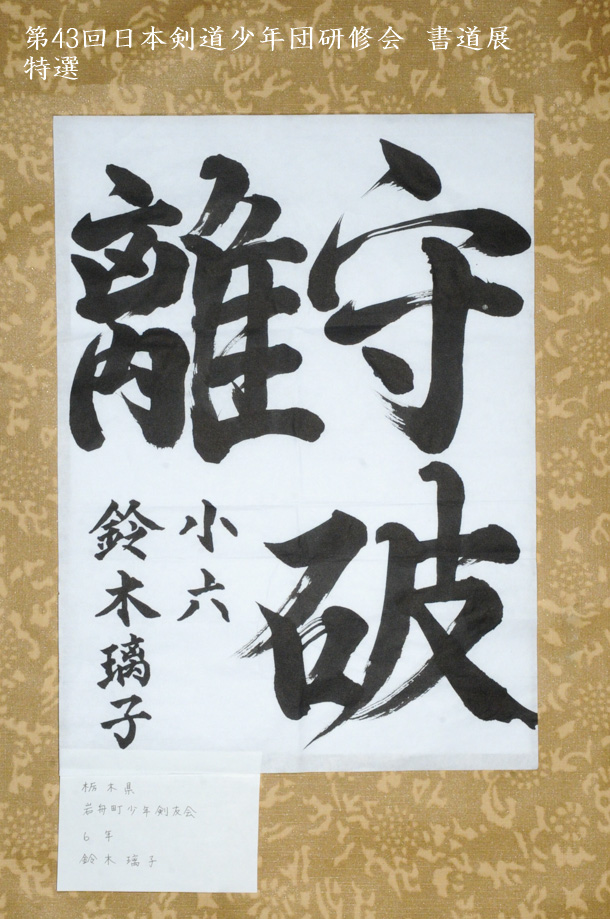 第43回日本剣道少年団研修会 書道展
特選
守破
離
小六
鈴木璃子
栃木県
岩舟町少年剣友会
6年
鈴木璃子